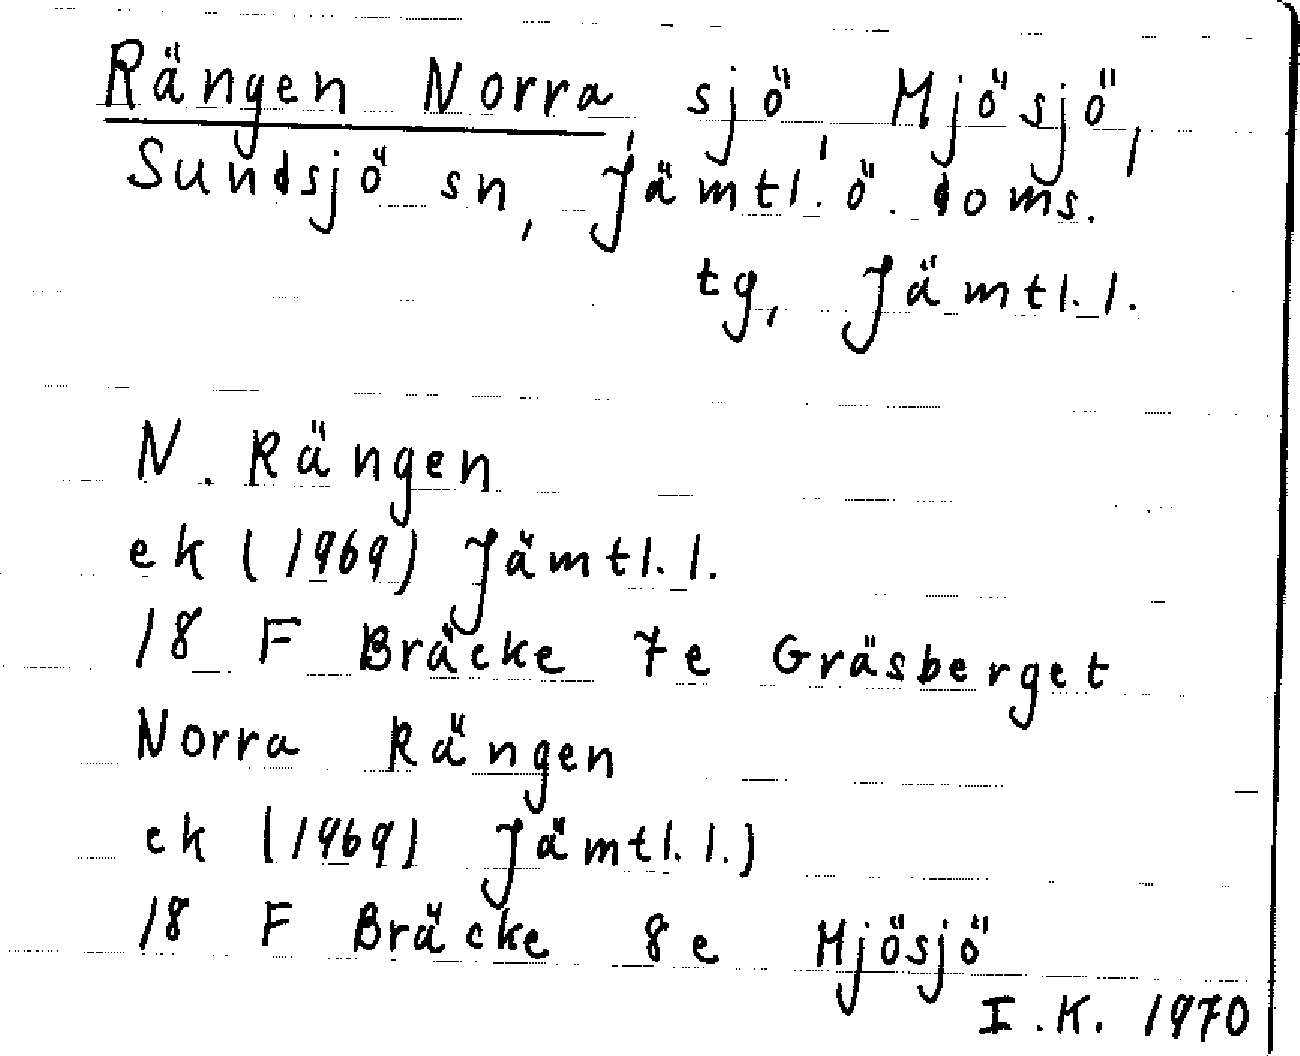 Rängen Norra, sjö, Mjösjö,
Sundsjö sn, Jämtl. ö. doms.
tg, Jämtl. l.
N. Rängen
ek (1969) Jämtl. l.
18 F Bräcke 7e Gräsberget
Norra Rängen
ek (1969) Jämtl. l.)
18 F Bräcke 8e Mjösjö
I.K. 1970